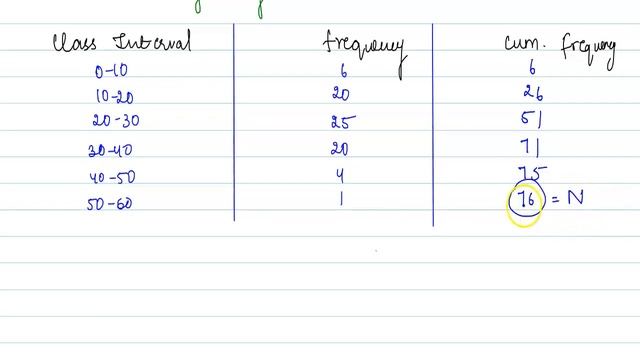 Class Interval frequency cum. frequency
0-10 6 6
10-20 20 26
20-30 25 51
30-40 20 71
40-50 4 75
50-60 1 76 = N